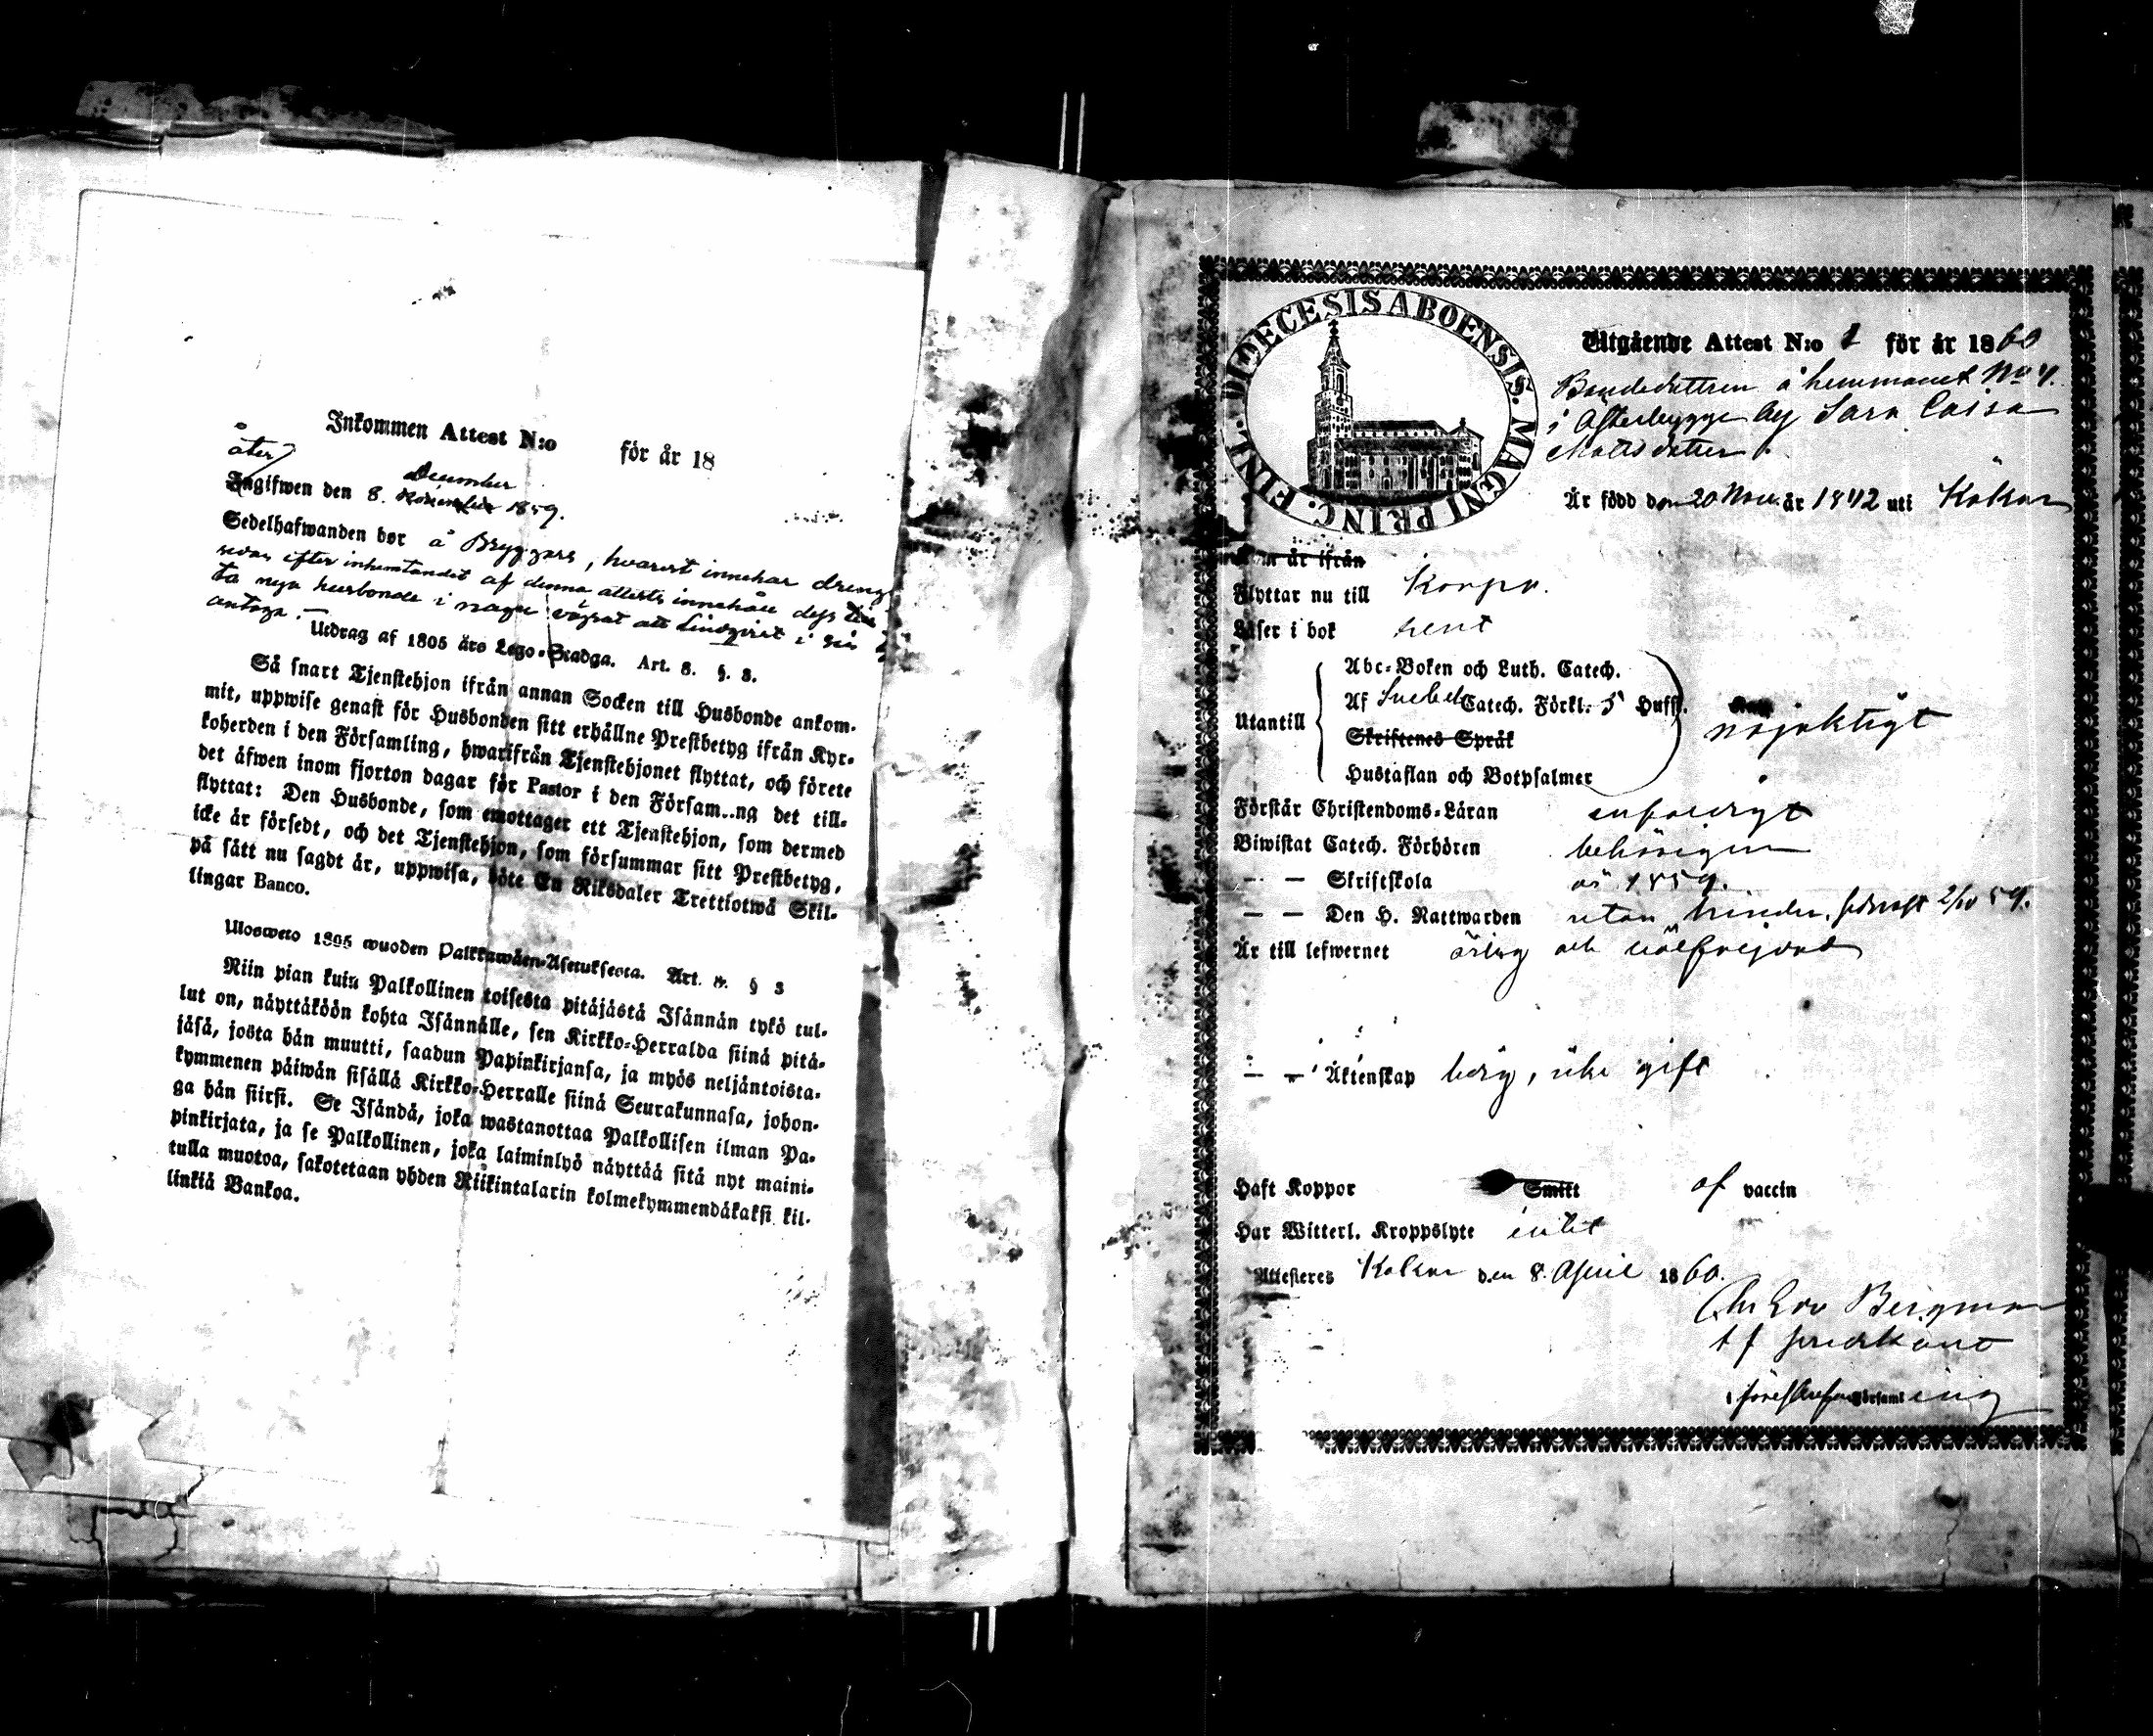 Inkommen Attest N:o för år 18
åter
December
Ingifwen den 8. November 1859.
Sedelhafwanden bor å Bryggars, hvarest innehar dreng
sedan efter inhemtandet af denna attests innehåll dess
ta nya husbonde i Nagu vägrat att Lindqvist i sin
antaga. —
Utdrag af 1805 års Lego-Stadga. Art. 8. §. 3.
Så snart Tjenstehjon ifrån annan Socken till Husbonde ankom-
mit, uppwise genast för Husbonden sitt erhållne Prestbetyg ifrån Kyr-
koherden i den Församling, hwarifrån Tjenstehjonet flyttat, och förete
det äfwen inom fjorton dagar för Pastor i den Försam..ng det till-
flyttat: Den Husbonde, som emottager ett Tjenstehjon, som dermed
icke är försedt, och det Tjenstehjon, som försummar sitt Prestbetyg,
på sätt nu sagdt är, uppwisa, böte En Riksdaler Trettiotwå Skil-
lingar Banco.
Ulosweto 1805 wuoden Palkkawäen-Asetuksesta. Art. 8. § 3
Niin pian kuin Palkollinen toisesta pitäjästä Isännän tykö tul-
lut on, näyttäköön kohta Isännälle, sen Kirkko-Herralda siinä pitä-
jäsä, josta hän muutti, saadun Papinkirjansa, ja myös neljäntoista-
kymmenen päiwän sisällä Kirkko-Herralle siinä Seurakunnasa, johon-
ga hän siirsi. Se Isändä, joka wastanottaa Palkollisen ilman Pa-
pinkirjata, ja se Palkollinen, joka laiminlyö näyttää sitä nyt maini-
tulla muotoa, sakotetaan yhden Riikintalarin kolmekymmendäkaksi kil-
linkiä Bankoa.
DIOECESIS ABOENSIS. MAGNI PRINC. FINL.
Utgående Attest N:o 1 för år 1860
Bondedottren å hemmanet No 4.
i Österbygge by Sara Caisa
Matsdotter.
Är född den 20 Nov. år 1842 uti Kökar
Som är ifrån
Flyttar nu till Korpo.
Läser i bok rent
Abc-Boken och Luth. Catech.
Af Svebel. Catech. Förkl. 5 Hufst.
Utantill nöjaktigt
Skriftenes Språk
Hustaflan och Botpsalmer
Förstår Christendoms-Läran enfaldigt
Biwistat Catech. Förhören behörigen
— — Skriftskola år 1859.
— — Den H. Nattwarden utan hinder, sednast 2/10 59.
Är till lefwernet ärlig och välfrejdad
— — Äktenskap ledig, icke gift
Haft Koppor Smitt af vaccin
Har Witterl. Kroppslyte intet
Attesteres Kökar den 8. April 1860.
Bergman
t f predikant
i förestående församling